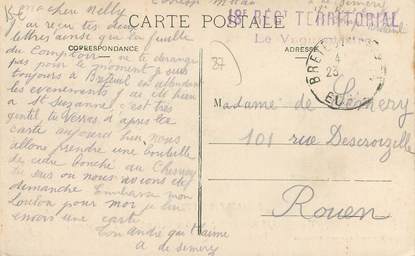 CARTE POSTALE
8e RÉGt TERRITORIAL
Le Vaguemestre
CORRESPONDANCE
ADRESSE
37
ma chère Nelly
j'ai reçu tes deux
lettres ainsi que la feuille
du Comptoir, ne te dérange
pas pour le moment je suis
toujours à Breteuil en attendant
les evenements
St Suzanne, c'est très
gentil, tu verras d'après
carte aujourd'hui nous
allons prendre une bouteille
de cidre bouché au Chesnay
tu sais ou nous avions été
dimanche Embrasse mon
Loulou pour moi je lui
envoie une carte
ton André qui t'aime
A de Semery
Madame de Semery
101 rue Descroizille
Rouen